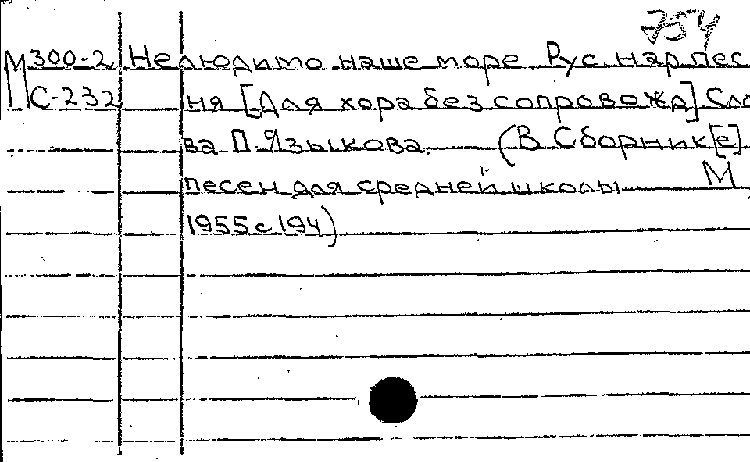 754
М 300-2 Нелюдимо наше море. Рус. нар. пес
С-232 ня [Для хора без сопровожд] Сло
ва П. Языкова. (В Сборник[е]
песен для средней школы М
1955 с 194)